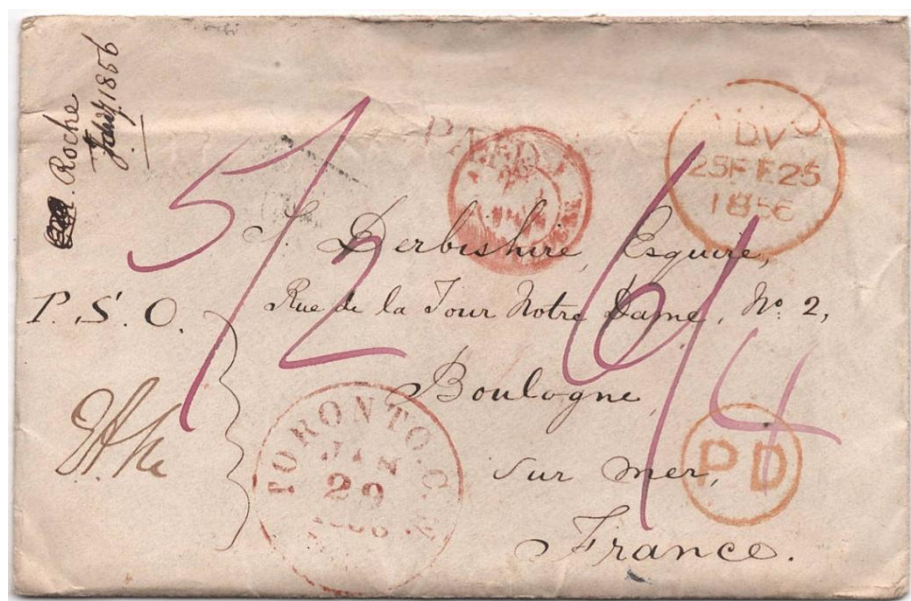 Roche
Jany 1856
PAID
DV
25 FE 25
1856
5/2
6/4
S. Derbishire, Esquire,
Rue de la Tour Notre Dame, No. 2,
P.S.O.
Boulogne
sur mer,
France.
TORONTO. C. W.
JAN
29
1856
PD